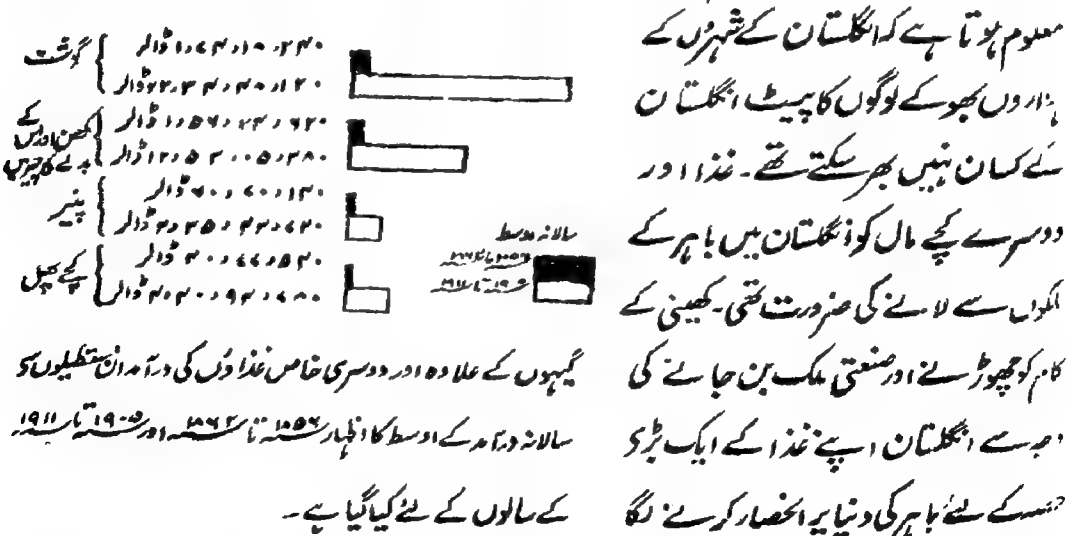 معلوم ہوتا ہے کہ انگلستان کے شہروں کے
ہزاروں بھوکے لوگوں کا پیٹ انگلستان
کے کسان نہیں بھر سکتے تھے۔ غذا اور
دوسرے کچے مال کو انگلستان میں باہر کے
ملکوں سے لانے کی ضرورت تھی۔ کھیتی کے
کام کو چھوڑنے اور صنعتی ملک بن جانے کی
وجہ سے انگلستان اپنے غذا کے ایک بڑی
حصہ کے لئے باہر کی دنیا پر انحصار کرنے لگا
گوشت
ڈالر
ڈالر
مکھن اور اس کے
بدلے کی چیزیں
ڈالر
ڈالر
پنیر
ڈالر
ڈالر
کچے پھل
ڈالر
ڈالر
سالانہ اوسط
۱۸۵۶ تا ۱۸۶۲
۱۹۰۵ تا ۱۹۱۱
گیہوں کے علاوہ اور دوسری خاص غذاؤں کی درآمد ان مستطیلوں سے
سالانہ درآمد کے اوسط کا اظہار ۱۸۵۶ تا ۱۸۶۲ اور ۱۹۰۵ تا ۱۹۱۱
کے سالوں کے لئے کیا گیا ہے۔